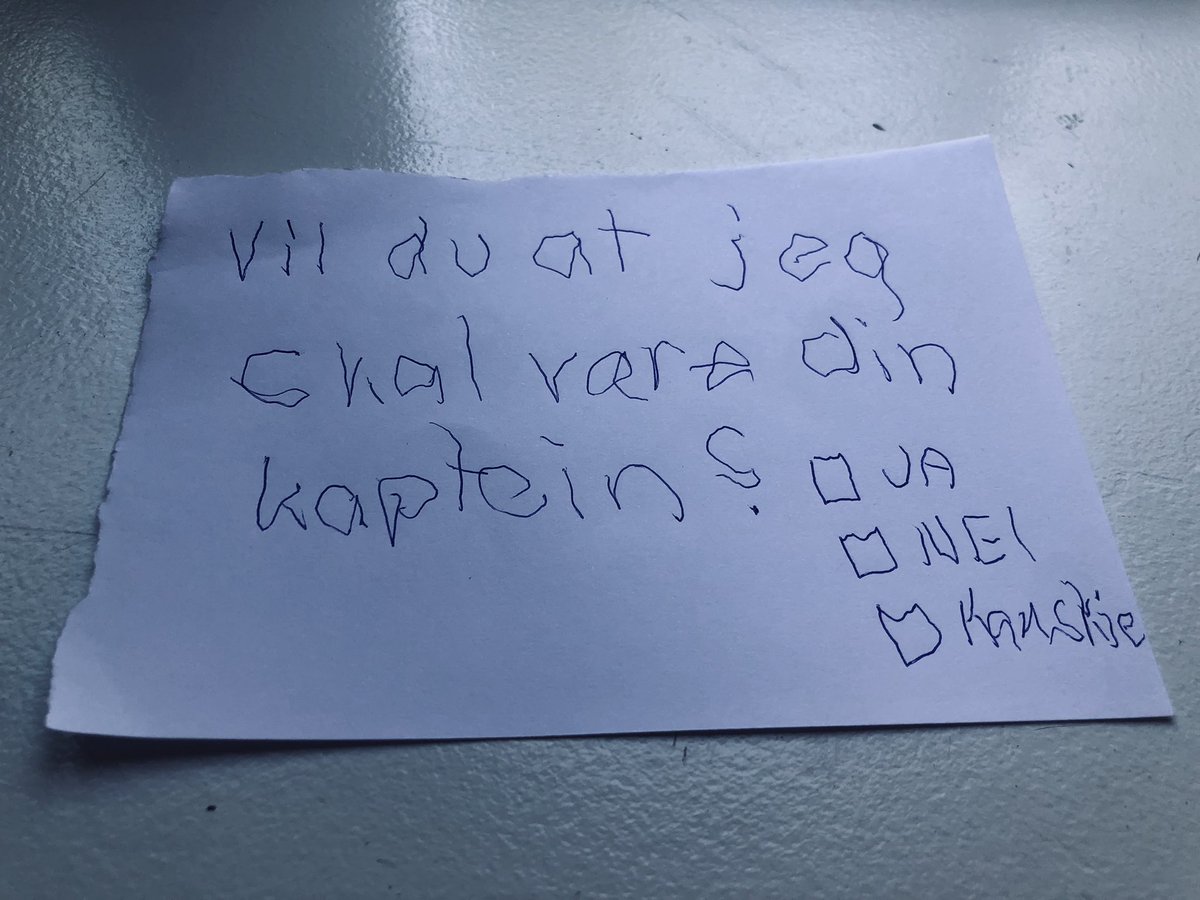 Vil du at jeg
skal være din
kaptein?
JA
NEI
Kanskje